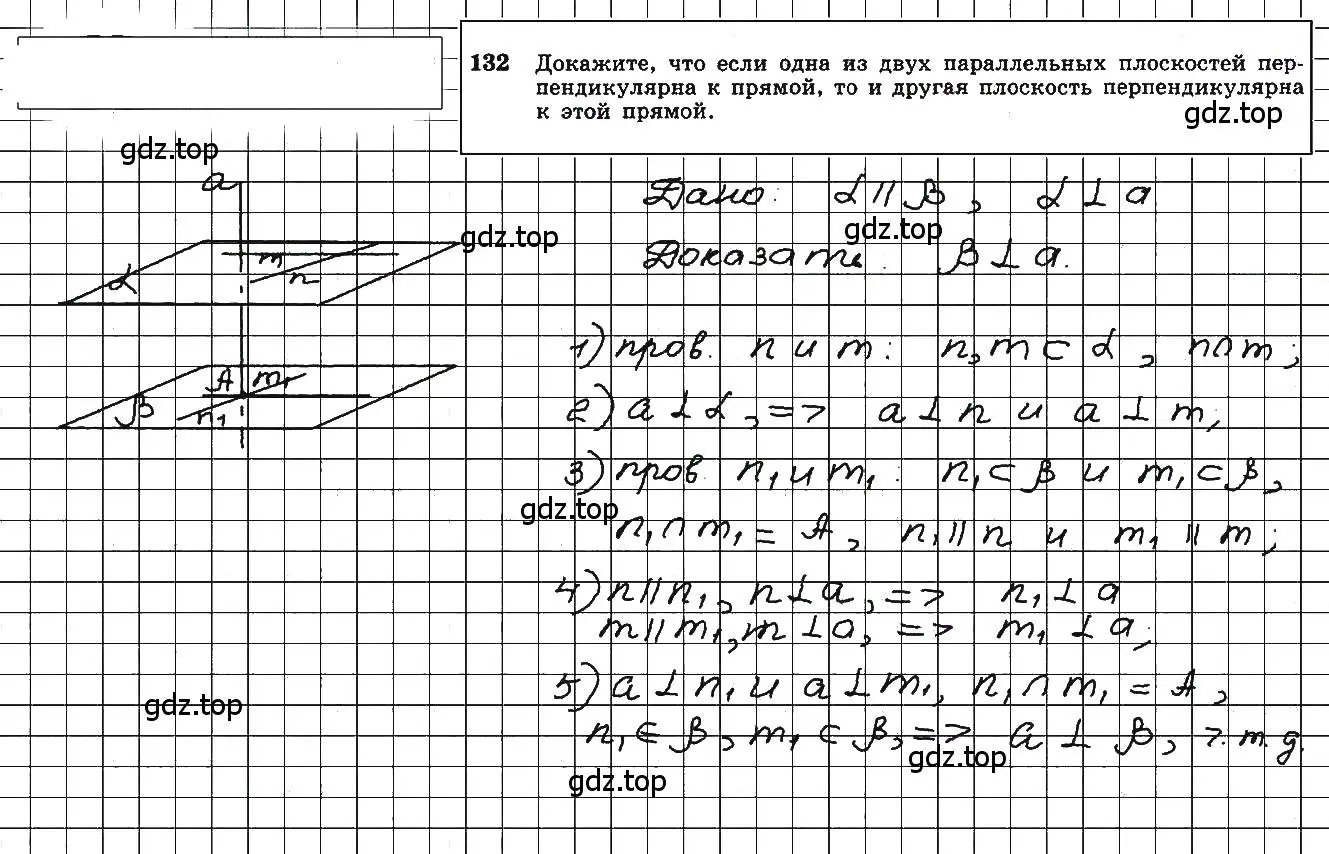 132 Докажите, что если одна из двух параллельных плоскостей пер-
пендикулярна к прямой, то и другая плоскость перпендикулярна
к этой прямой.
gdz.top
gdz.top
a
Дано: α || β, α ⊥ a
gdz.top
gdz.top
m
n
α
Доказать: β ⊥ a.
1) пров. n и m: n, m ⊂ α, n∩m;
A m₁
β
n₁
2) a ⊥ α, => a ⊥ n и a ⊥ m;
3) пров n₁ и m₁: n₁ ⊂ β и m₁ ⊂ β,
gdz.top
n₁ ∩ m₁ = A, n₁ || n и m₁ || m;
4) n || n₁, n ⊥ a, => n₁ ⊥ a
m || m₁, m ⊥ a, => m₁ ⊥ a;
5) a ⊥ n₁ и a ⊥ m₁, n₁ ∩ m₁ = A,
gdz.top
n₁ ∈ β, m₁ ⊂ β, => a ⊥ β, ч.т.д.
gdz.top
gdz.top